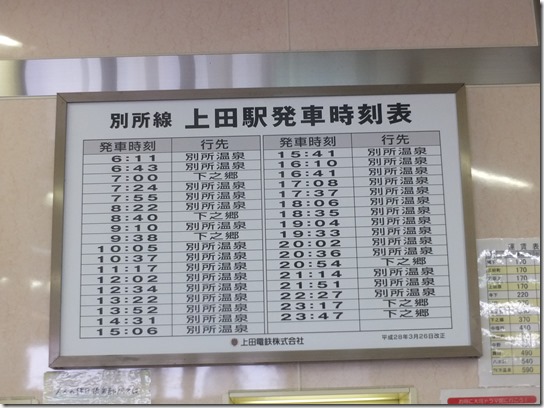 別所線 上田駅発車時刻表
発車時刻 行先
6:11 別所温泉
6:43 別所温泉
7:00 下之郷
7:24 別所温泉
7:55 別所温泉
8:22 別所温泉
8:40 下之郷
9:10 別所温泉
9:38 下之郷
10:05 別所温泉
10:37 別所温泉
11:17 別所温泉
12:02 別所温泉
12:34 別所温泉
13:22 別所温泉
13:52 別所温泉
14:31 別所温泉
15:06 別所温泉
発車時刻 行先
15:41 別所温泉
16:10 別所温泉
16:41 別所温泉
17:08 別所温泉
17:37 別所温泉
18:06 別所温泉
18:35 別所温泉
19:04 別所温泉
19:33 別所温泉
20:02 別所温泉
20:36 別所温泉
20:54 下之郷
21:14 別所温泉
21:51 別所温泉
22:27 別所温泉
23:17 下之郷
23:47 下之郷
上田電鉄株式会社
平成28年3月26日改正
運賃表
170
170
170
220
370
410
490
540
590